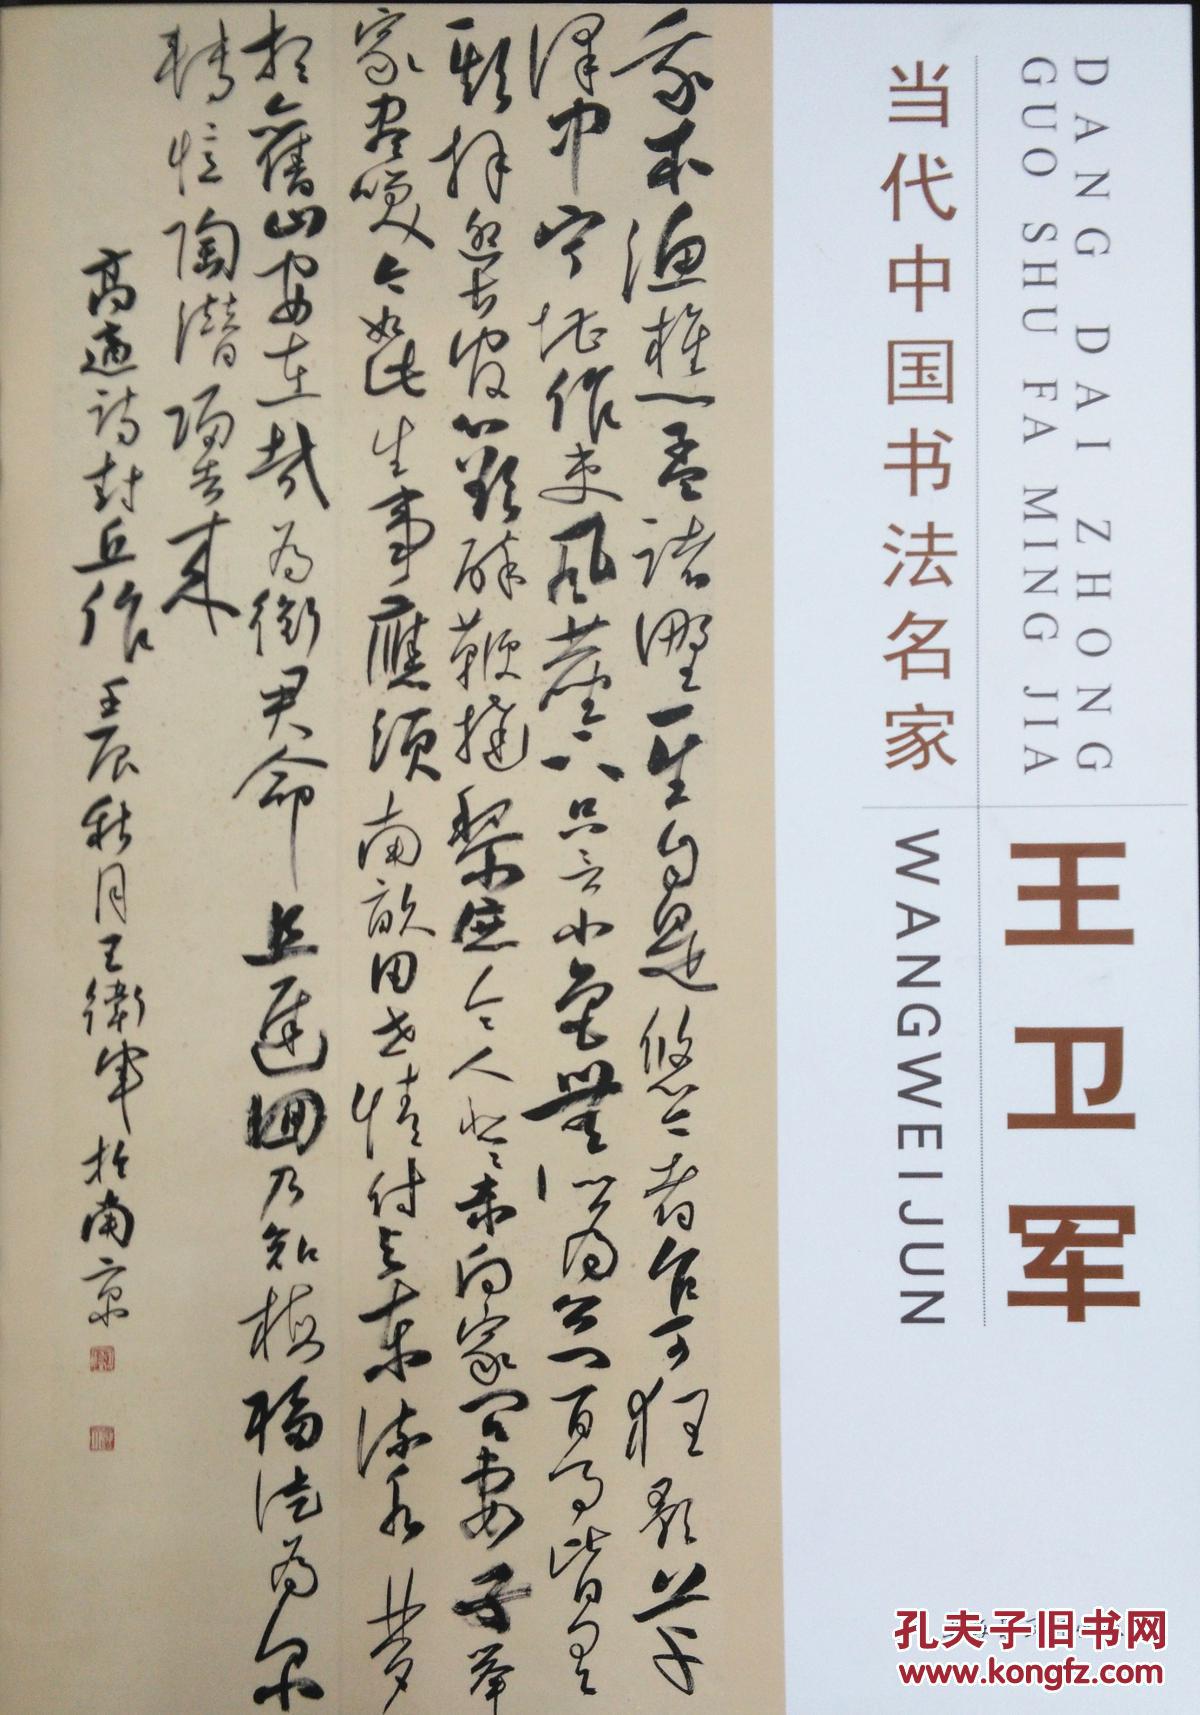 DANG DAI ZHONG
GUO SHU FA MING JIA
当代中国书法名家
王卫军
WANGWEIJUN
我本漁樵孟諸野一生自是悠悠者乍可狂歌草
澤中寧堪作吏風塵下只言小邑無所為公門百事皆有
期拜迎官長心欲碎鞭撻黎庶令人悲來向家問妻子舉
家盡笑今如此生事應須南畝田世情付与東流水夢
想舊山安在哉為銜君命且遲迴乃知梅福徒為尔
轉憶陶潛歸去来
高適詩封丘作 壬辰秋月王衛軍於南京
孔夫子旧书网
www.kongfz.com